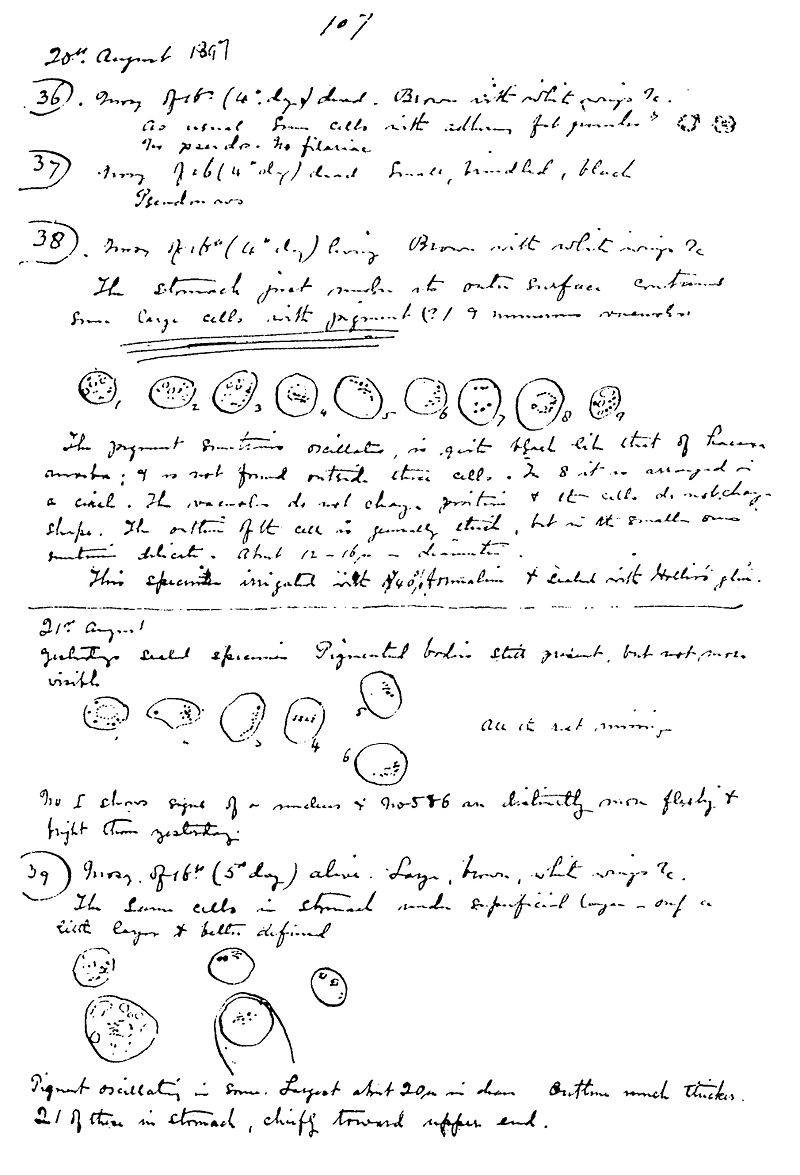 107
20th August 1897
36. Mosq of 16th (4th day) dead. Brown with white wings &c.
As usual Some cells with adhering fat granules
No pseudo. No filariae
37 Mosq of 16 (4th day) dead Small, brindled, black
Pseudonavs
38. Mosq of 16th (4th day) living Brown with white wings &c
The stomach just under its outer surface contains
some large cells with pigment (?) & numerous vacuoles
1 2 3 4 5 6 7 8 9
The pigment sometimes oscillates, is quite black like that of
amoeba; & is not found outside these cells. In 8 it is arranged in
a circle. The vacuoles do not change position & the cells do not change
shape. The outline of the cell is generally thick, but in the smaller ones
sometimes delicate. About 12-16µ in diameter.
This specimen irrigated with 40% formalin & sealed with Hollis's glue.
21st August
Yesterdays sealed specimen Pigmented bodies still present, but not more
visible
3 4 5 6
All the rest missing
No 1 shows signs of a nucleus & No 5 & 6 are distinctly more fleshy &
bright than yesterday.
39 Mosq. of 16th (5th day) alive. Large, brown, white wings &c.
The same cells in stomach under superficial layer - only a
little larger & better defined
Pigment oscillating in some. Largest about 20µ in diam Outline much thicker.
21 of these in stomach, chiefly toward upper end.